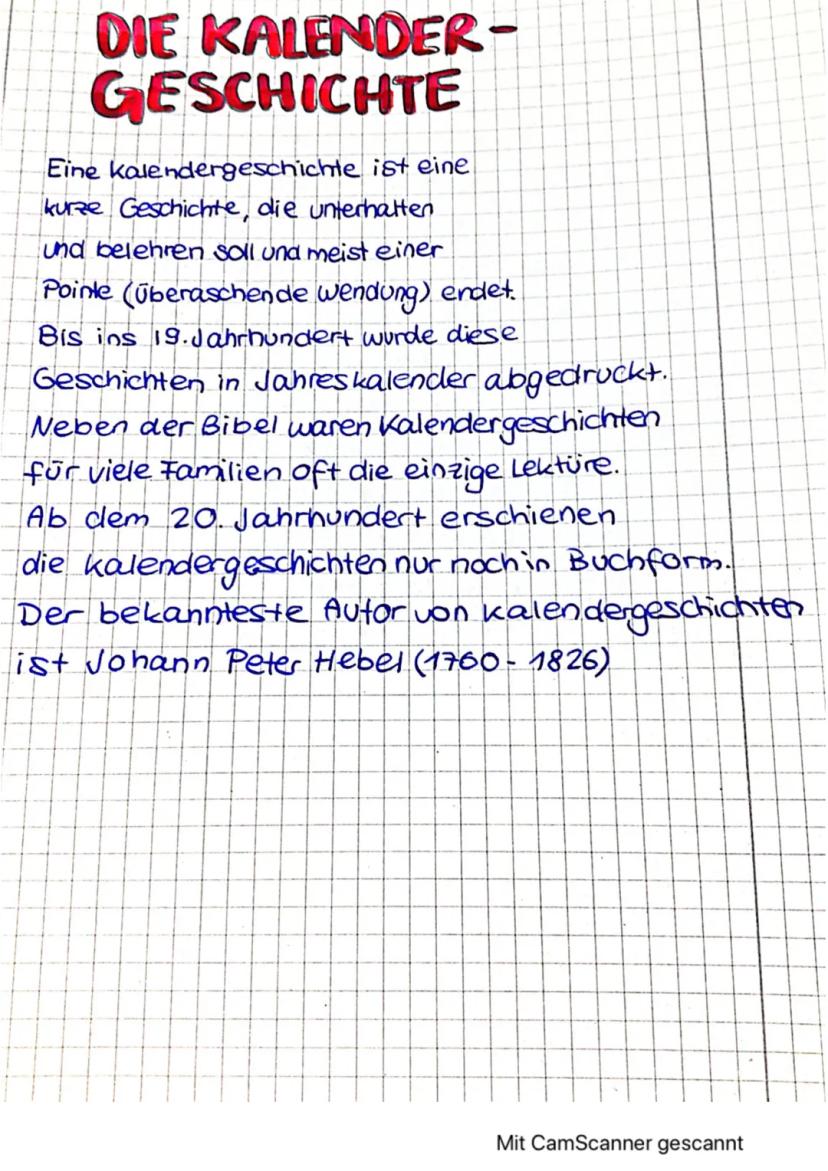 DIE KALENDER-
GESCHICHTE
Eine Kalendergeschichte ist eine
kurze Geschichte, die unterhalten
und belehren soll und meist einer
Pointe (überaschende Wendung) endet.
Bis ins 19. Jahrhundert wurde diese
Geschichten in Jahreskalender abgedruckt.
Neben der Bibel waren Kalendergeschichten
für viele Familien oft die einzige Lektüre.
Ab dem 20. Jahrhundert erschienen
die Kalendergeschichten nur noch in Buchform.
Der bekannteste Autor von Kalendergeschichten
ist Johann Peter Hebel (1760 - 1826)
Mit CamScanner gescannt